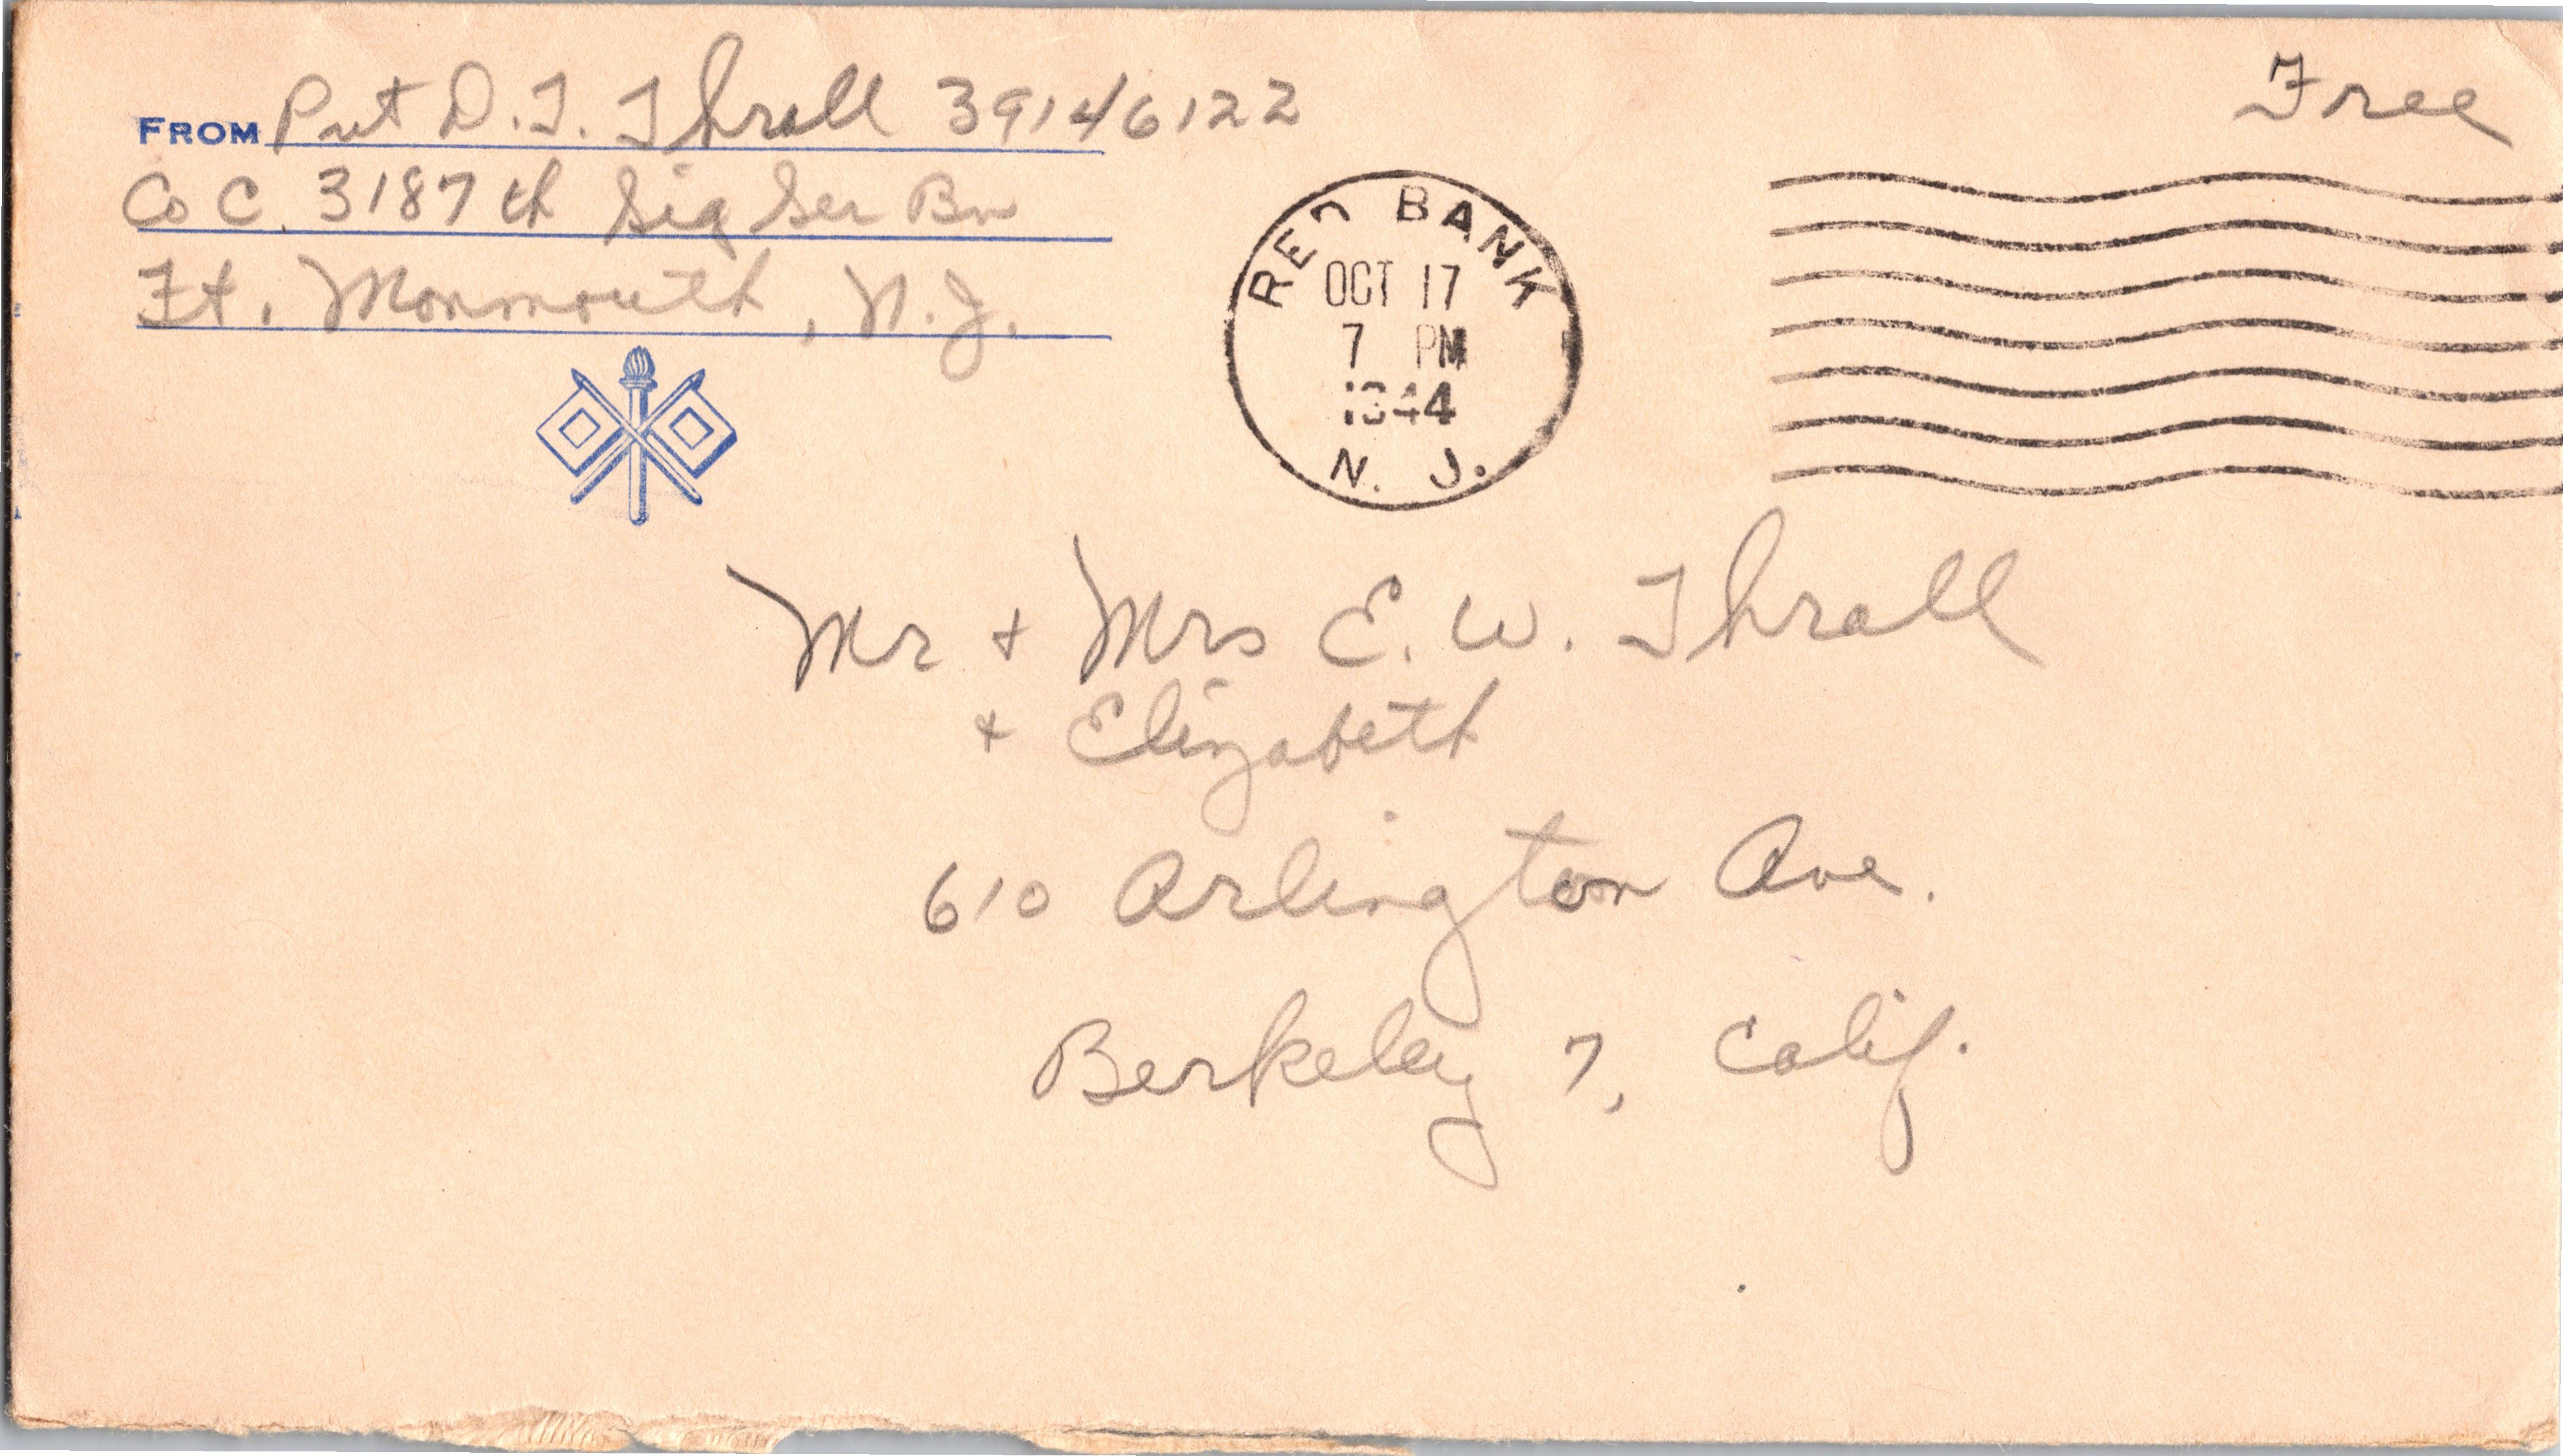 FROM Pvt D. T. Thrall 39146122
Co C. 3187th Sig Ser Bn
Ft. Monmouth, N.J.
Free
RED BANK
OCT 17
7 PM
1944
N. J.
Mr + Mrs E. W. Thrall
+ Elizabeth
610 Arlington Ave.
Berkeley 7, Calif.